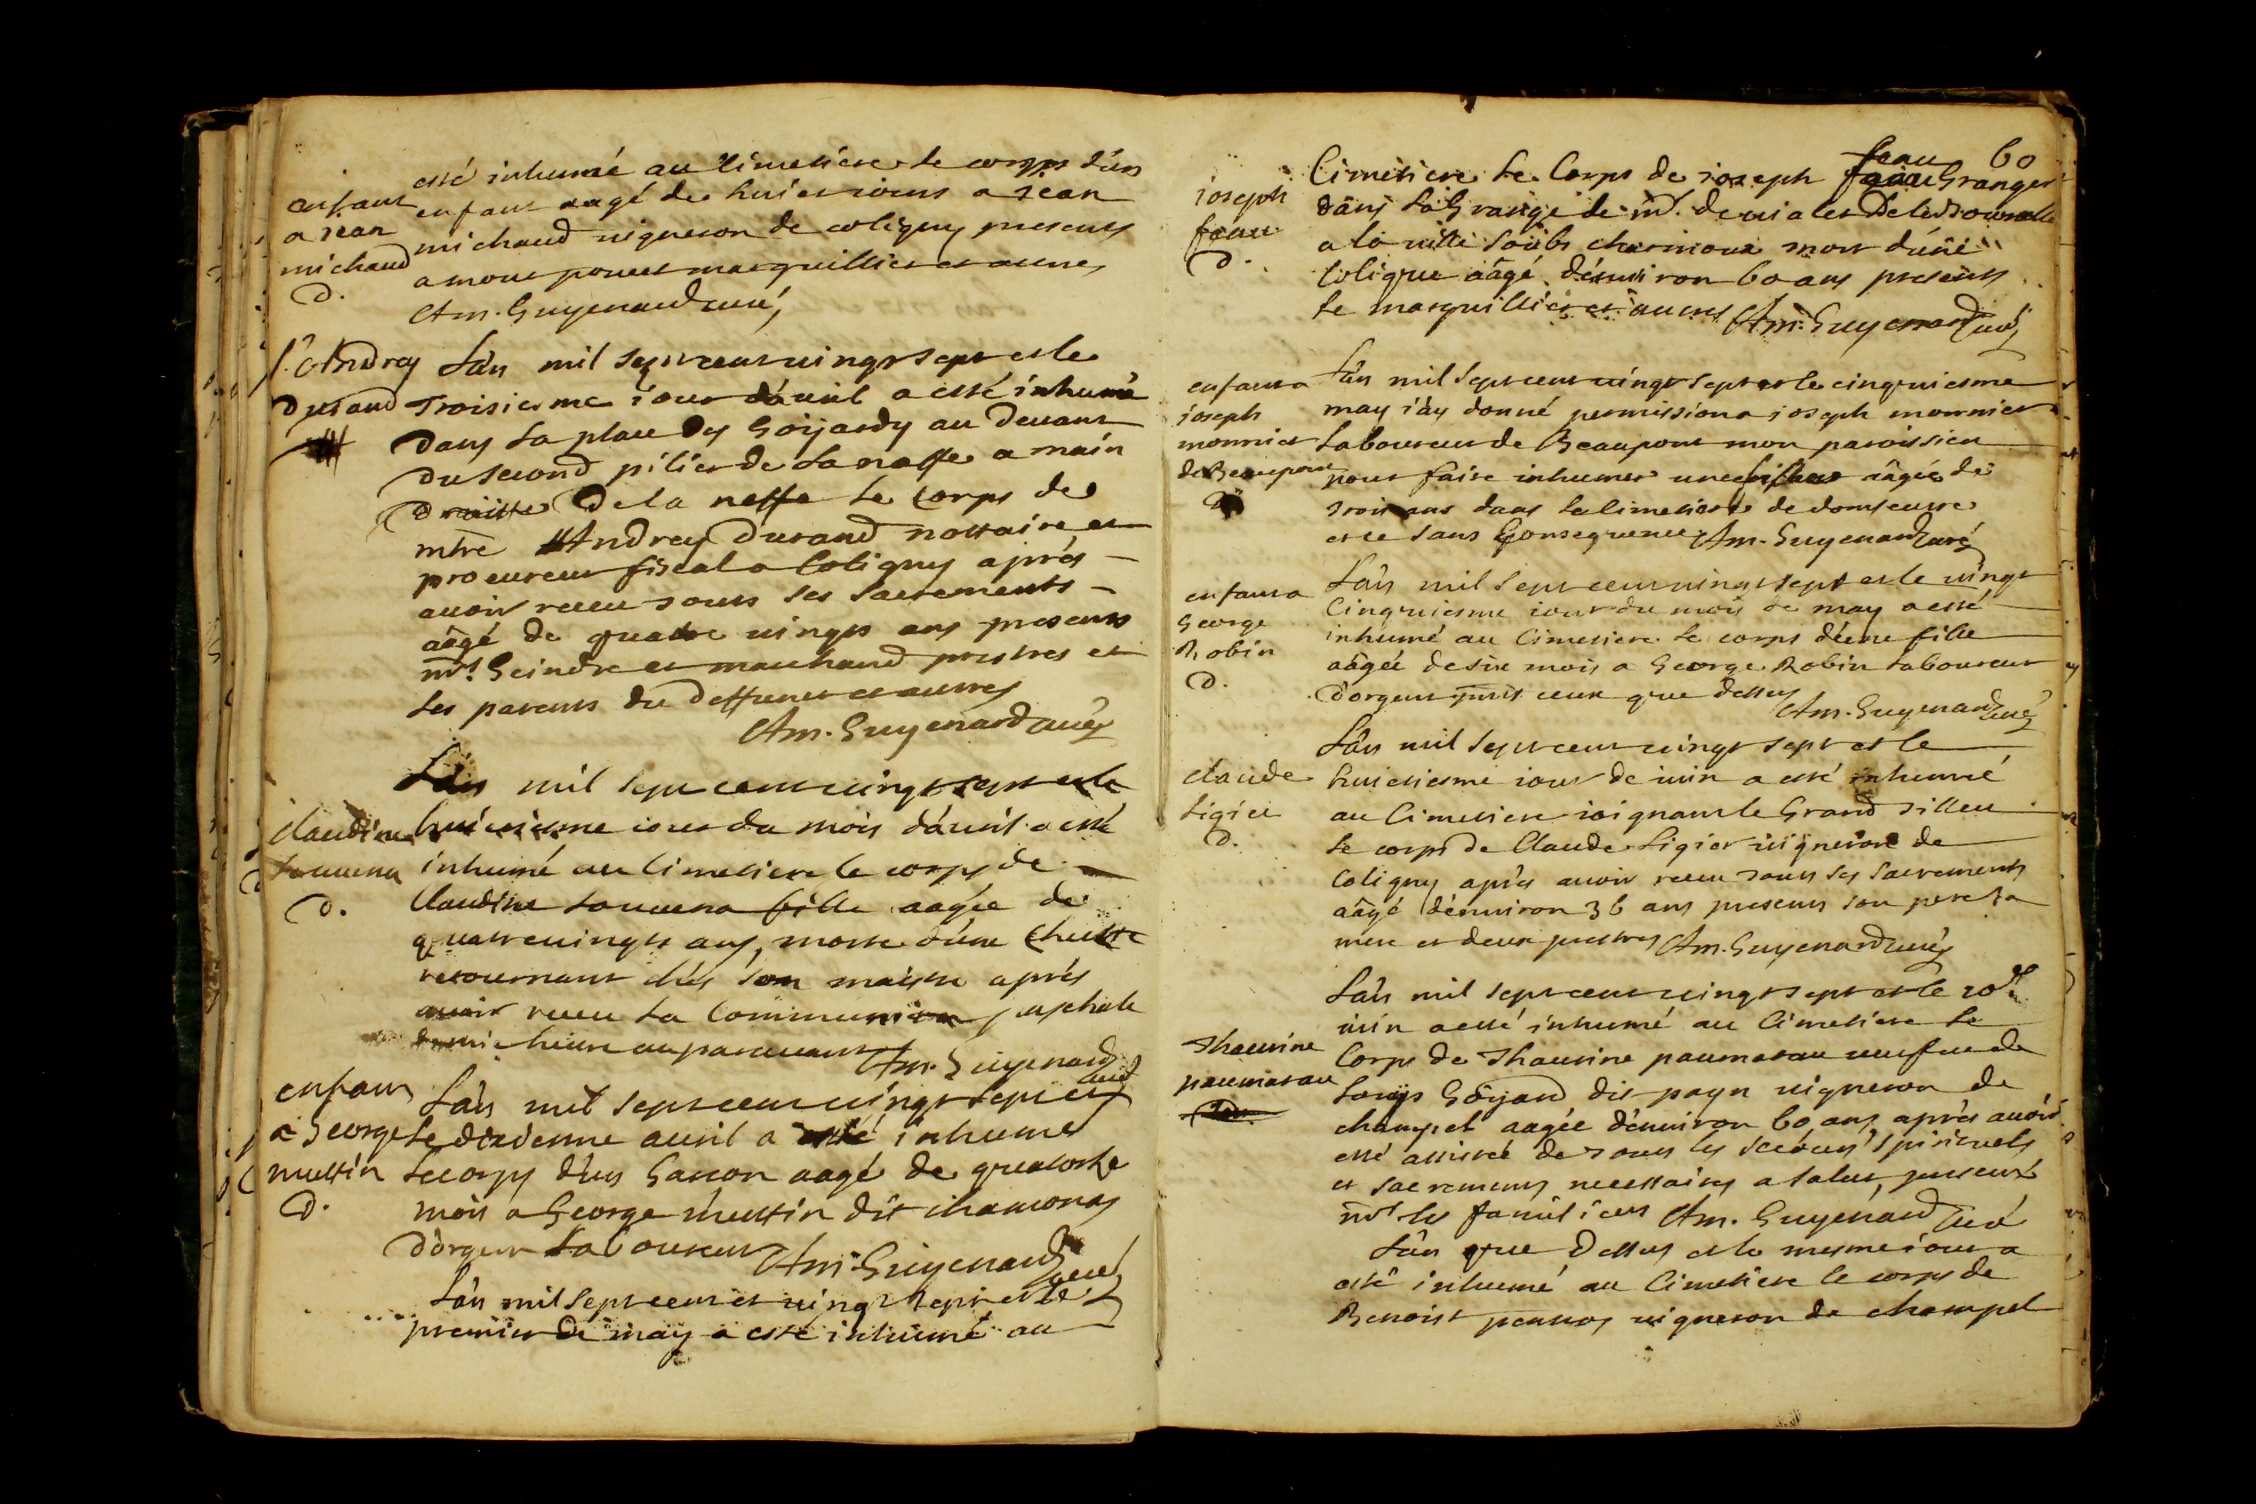 esté inhumé au Cimetiere le corps d'un
enfant a Jean michaud D.
enfant aagé de huict iours a Jean
michaud vigneron de coligny presents
amour pouet marguillier et autres
Am. Guyenard curé
Sr Andrey Durand
L'an mil sept cent vingt sept et le
troisiesme iour d'avril a esté inhumé
dans la place des Goÿardz au devant
du second pilier de la naffe a main
droitte de la neffe le corps de
mtre Andrey Durand nottaire et
procureur fiscal a Coligny aprés
avoir receu tous ses sacrements
aâgé de quatre vingts ans presents
mrs Geindre et marchand prestres et
les parents du deffunct et autres
Am. Guyenard curé
L'an mil sept cent vingt sept et le
claudine D.
huictiesme iour du mois d'avril a esté
inhumé au Cimetiere le corps de
Claudine fille aagée de
quatre vingts ans, morte d'une chutte
retournant chés son maistre aprés
avoir receu la Communion paschale
demie heure auparavant Am. Guyenard curé
enfant a George muttin D.
L'an mil sept cent vingt sept et
le dixiesme avril a esté inhumé
le corps d'un Garcon aagé de quatorze
mois a George muttin dit chamonay
d'orgeur Laboureur Am. Guyenard curé
L'an mil sept cent et vingt sept et le
premier de may a esté inhumé au
60
joseph feau D.
Cimetiere le Corps de joseph feau Granger
dans la Grange de mr.
a la ville soubs charmoux mort d'une
Colique aâgé d'environ 60 ans presents
le marguillier et autres Am. Guyenard curé
enfant a joseph monnier de Beaupont
L'an mil sept cent vingt sept et le cinquiesme
may i'ay donné permission a joseph monnier
Laboureur de Beaupont mon paroissien
pour faire inhumer une fille aâgée de
trois ans dans le Cimetiere de domseure
et ce sans Consequence Am. Guyenard curé
enfant a George Robin D.
L'an mil sept cent vingt sept et le vingt
Cinquiesme iour du mois de may a esté
inhumé au Cimetiere le corps d'une fille
aâgée de six mois a George Robin Laboureur
d'orgeur pnts ceux que dessus Am. Guyenard curé
claude Ligier D.
L'an mil sept cent vingt sept et le
huictiesme iour de iuin a esté inhumé
au Cimetiere ioignant le Grand tilleu
le corps de Claude Ligier vigneron de
Coligny aprés avoir receu tous ses sacrements
aâgé d'environ 36 ans presents son pere sa
mere et deux prestres Am. Guyenard curé
Thaurine paumarau
L'an mil sept cent vingt sept et le 20e
iuin a esté inhumé au Cimetiere le
Corps de Thaurine paumarau veufve de
Louÿs Goÿard dit payn vigneron de
champel aagée d'environ 60 ans aprés avoir
esté assistée de tous les secours spirituels
et sacrements necessaires a salut presents
mrs les familiers Am. Guyenard curé
L'an que dessus et le mesme iour a
esté inhumé au Cimetiere le corps de
Benoist vigneron de champel